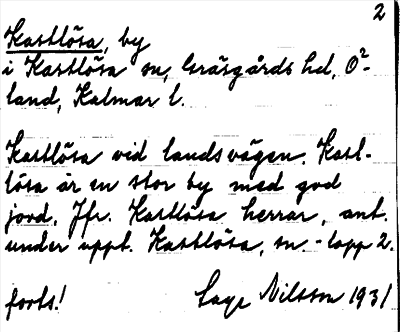 2
Kastlösa, by
i Kastlösa sn, Gräsgårds hd, Ö-
land, Kalmar l.
Kastlösa vid landsvägen. Kast-
lösa är en stor by med god
jord. Jfr. Kastlösa herrar, ant.
under uppt. Kastlösa, sn. - lapp 2.
forts! Sage Nilsson 1931